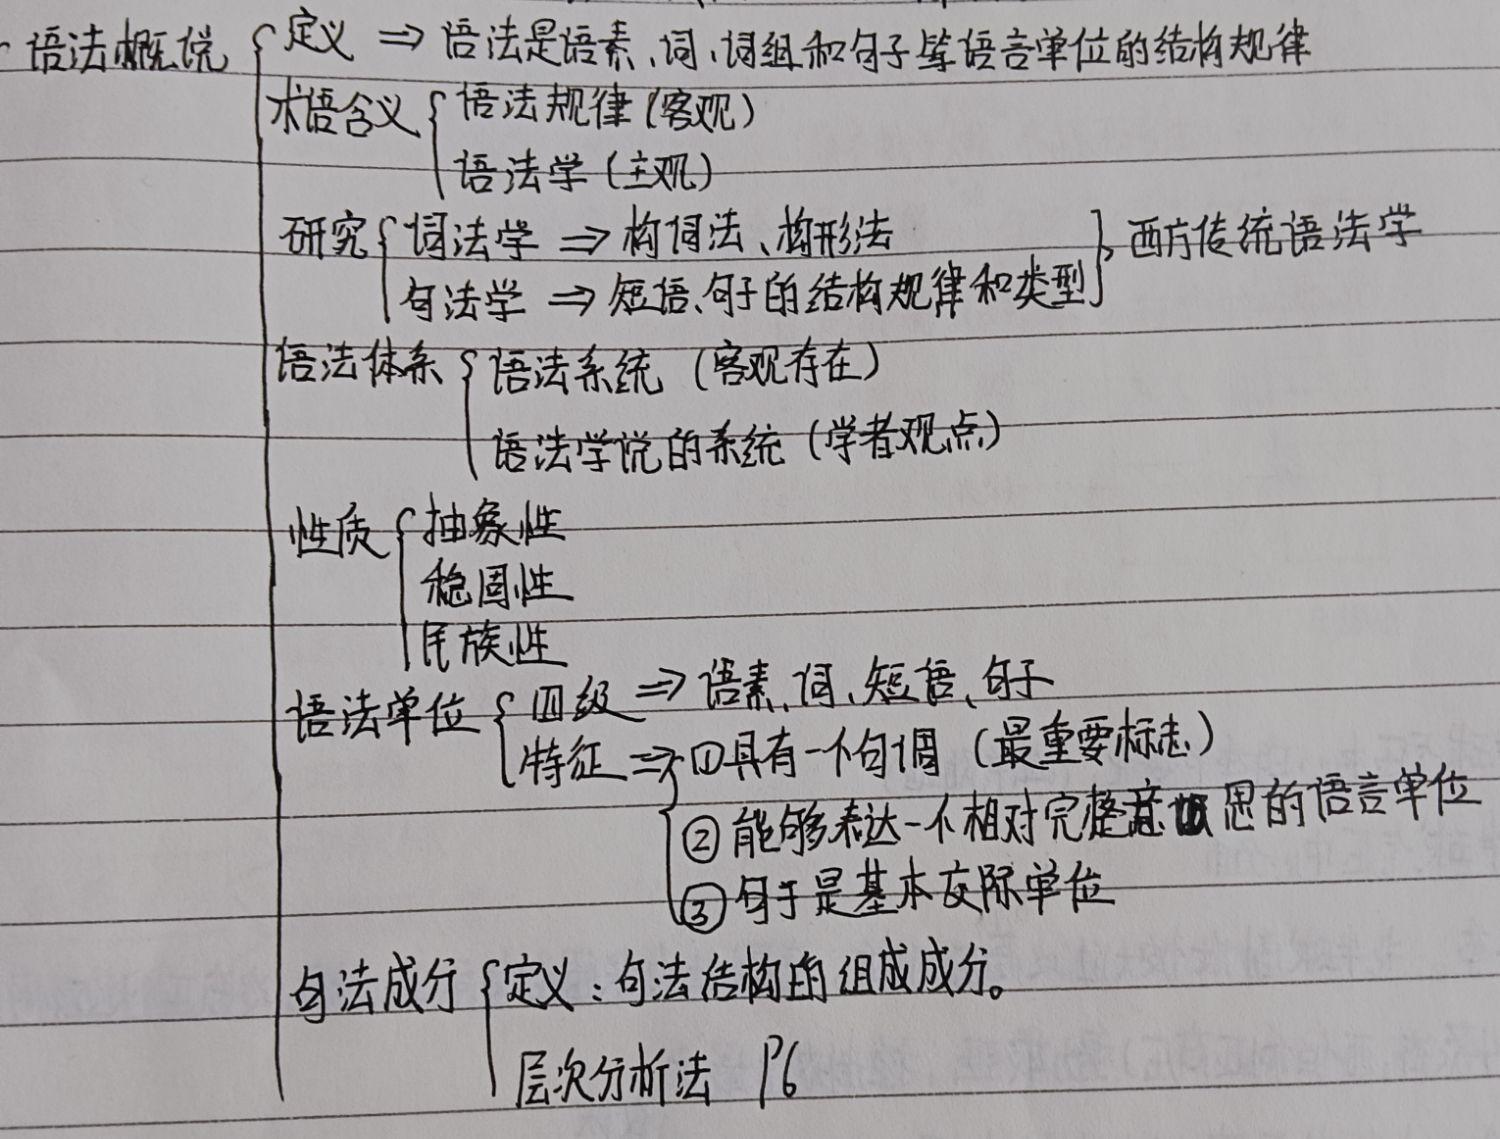 语法概说 定义 ⇒ 语法是语素、词、词组和句子等语言单位的结构规律
术语含义 语法规律(客观)
语法学(主观)
研究 词法学 ⇒ 构词法、构形法 西方传统语法学
句法学 ⇒ 短语、句子的结构规律和类型
语法体系 语法系统(客观存在)
语法学说的系统(学者观点)
性质 抽象性
稳固性
民族性
语法单位 四级 ⇒ 语素、词、短语、句子
特征 ⇒ ①具有一个句调(最重要标志)
②能够表达一个相对完整意思的语言单位
③句子是基本交际单位
句法成分 定义:句法结构的组成成分。
层次分析法 P6